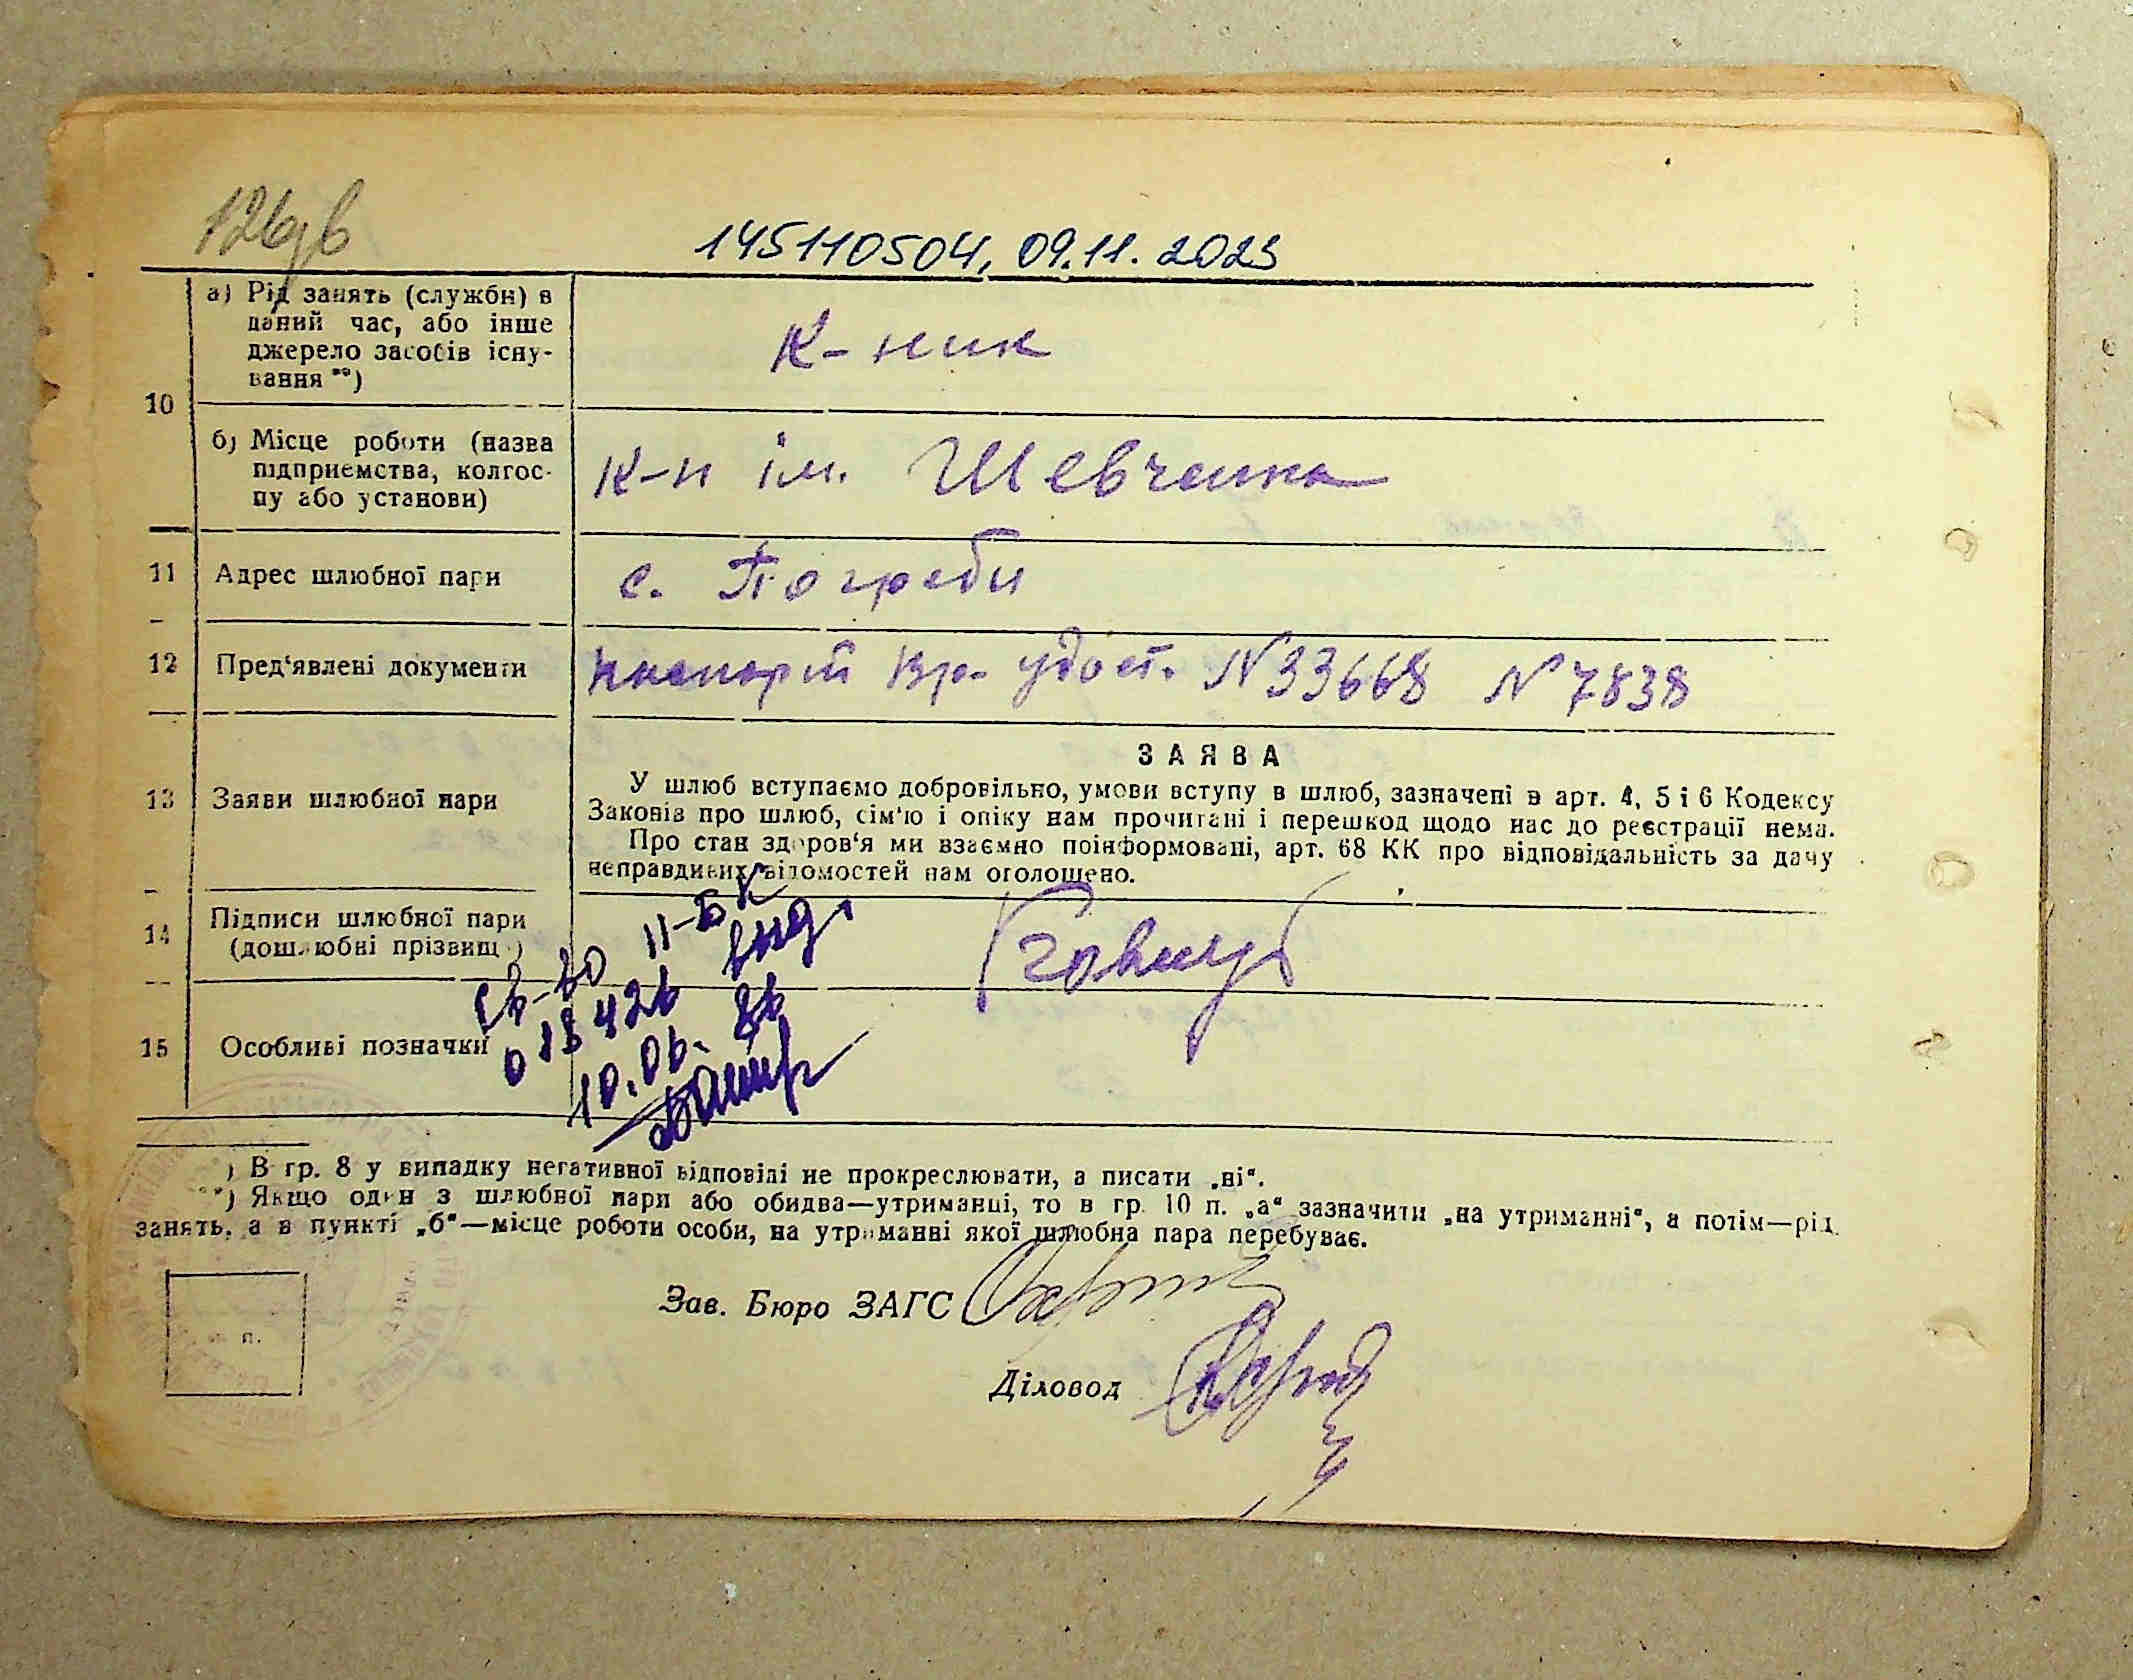 145110504, 09.11.2023
10
а) Рід занять (служби) в
даний час, або інше
джерело засобів існу-
вання **)
К-ник
б) Місце роботи (назва
підприємства, колгос-
пу або установи)
К-п ім. Шевченка
11 Адрес шлюбної пари
с. Погреби
12 Пред'явлені документи
паспорт Вр. удост. N 33668 N 7838
13 Заяви шлюбної пари
ЗАЯВА
У шлюб вступаємо добровільно, умови вступу в шлюб, зазначені в арт. 4, 5 і 6 Кодексу
Законів про шлюб, сім'ю і опіку нам прочитані і перешкод щодо нас до реєстрації нема.
Про стан здоров'я ми взаємно поінформовані, арт. 68 КК про відповідальність за дачу
неправдивих відомостей нам оголошено.
14 Підписи шлюбної пари
(дошлюбні прізвища)
15 Особливі позначки
св-во II-БК
018426 выд.
10.06.86
*) В гр. 8 у випадку негативної відповіді не прокреслювати, а писати „ні“.
**) Якщо один з шлюбної пари або обидва—утриманці, то в гр. 10 п. „а“ зазначити „на утриманні“, а потім—рід
занять, а в пункті „б“—місце роботи особи, на утриманні якої шлюбна пара перебуває.
Зав. Бюро ЗАГС
Діловод
п.